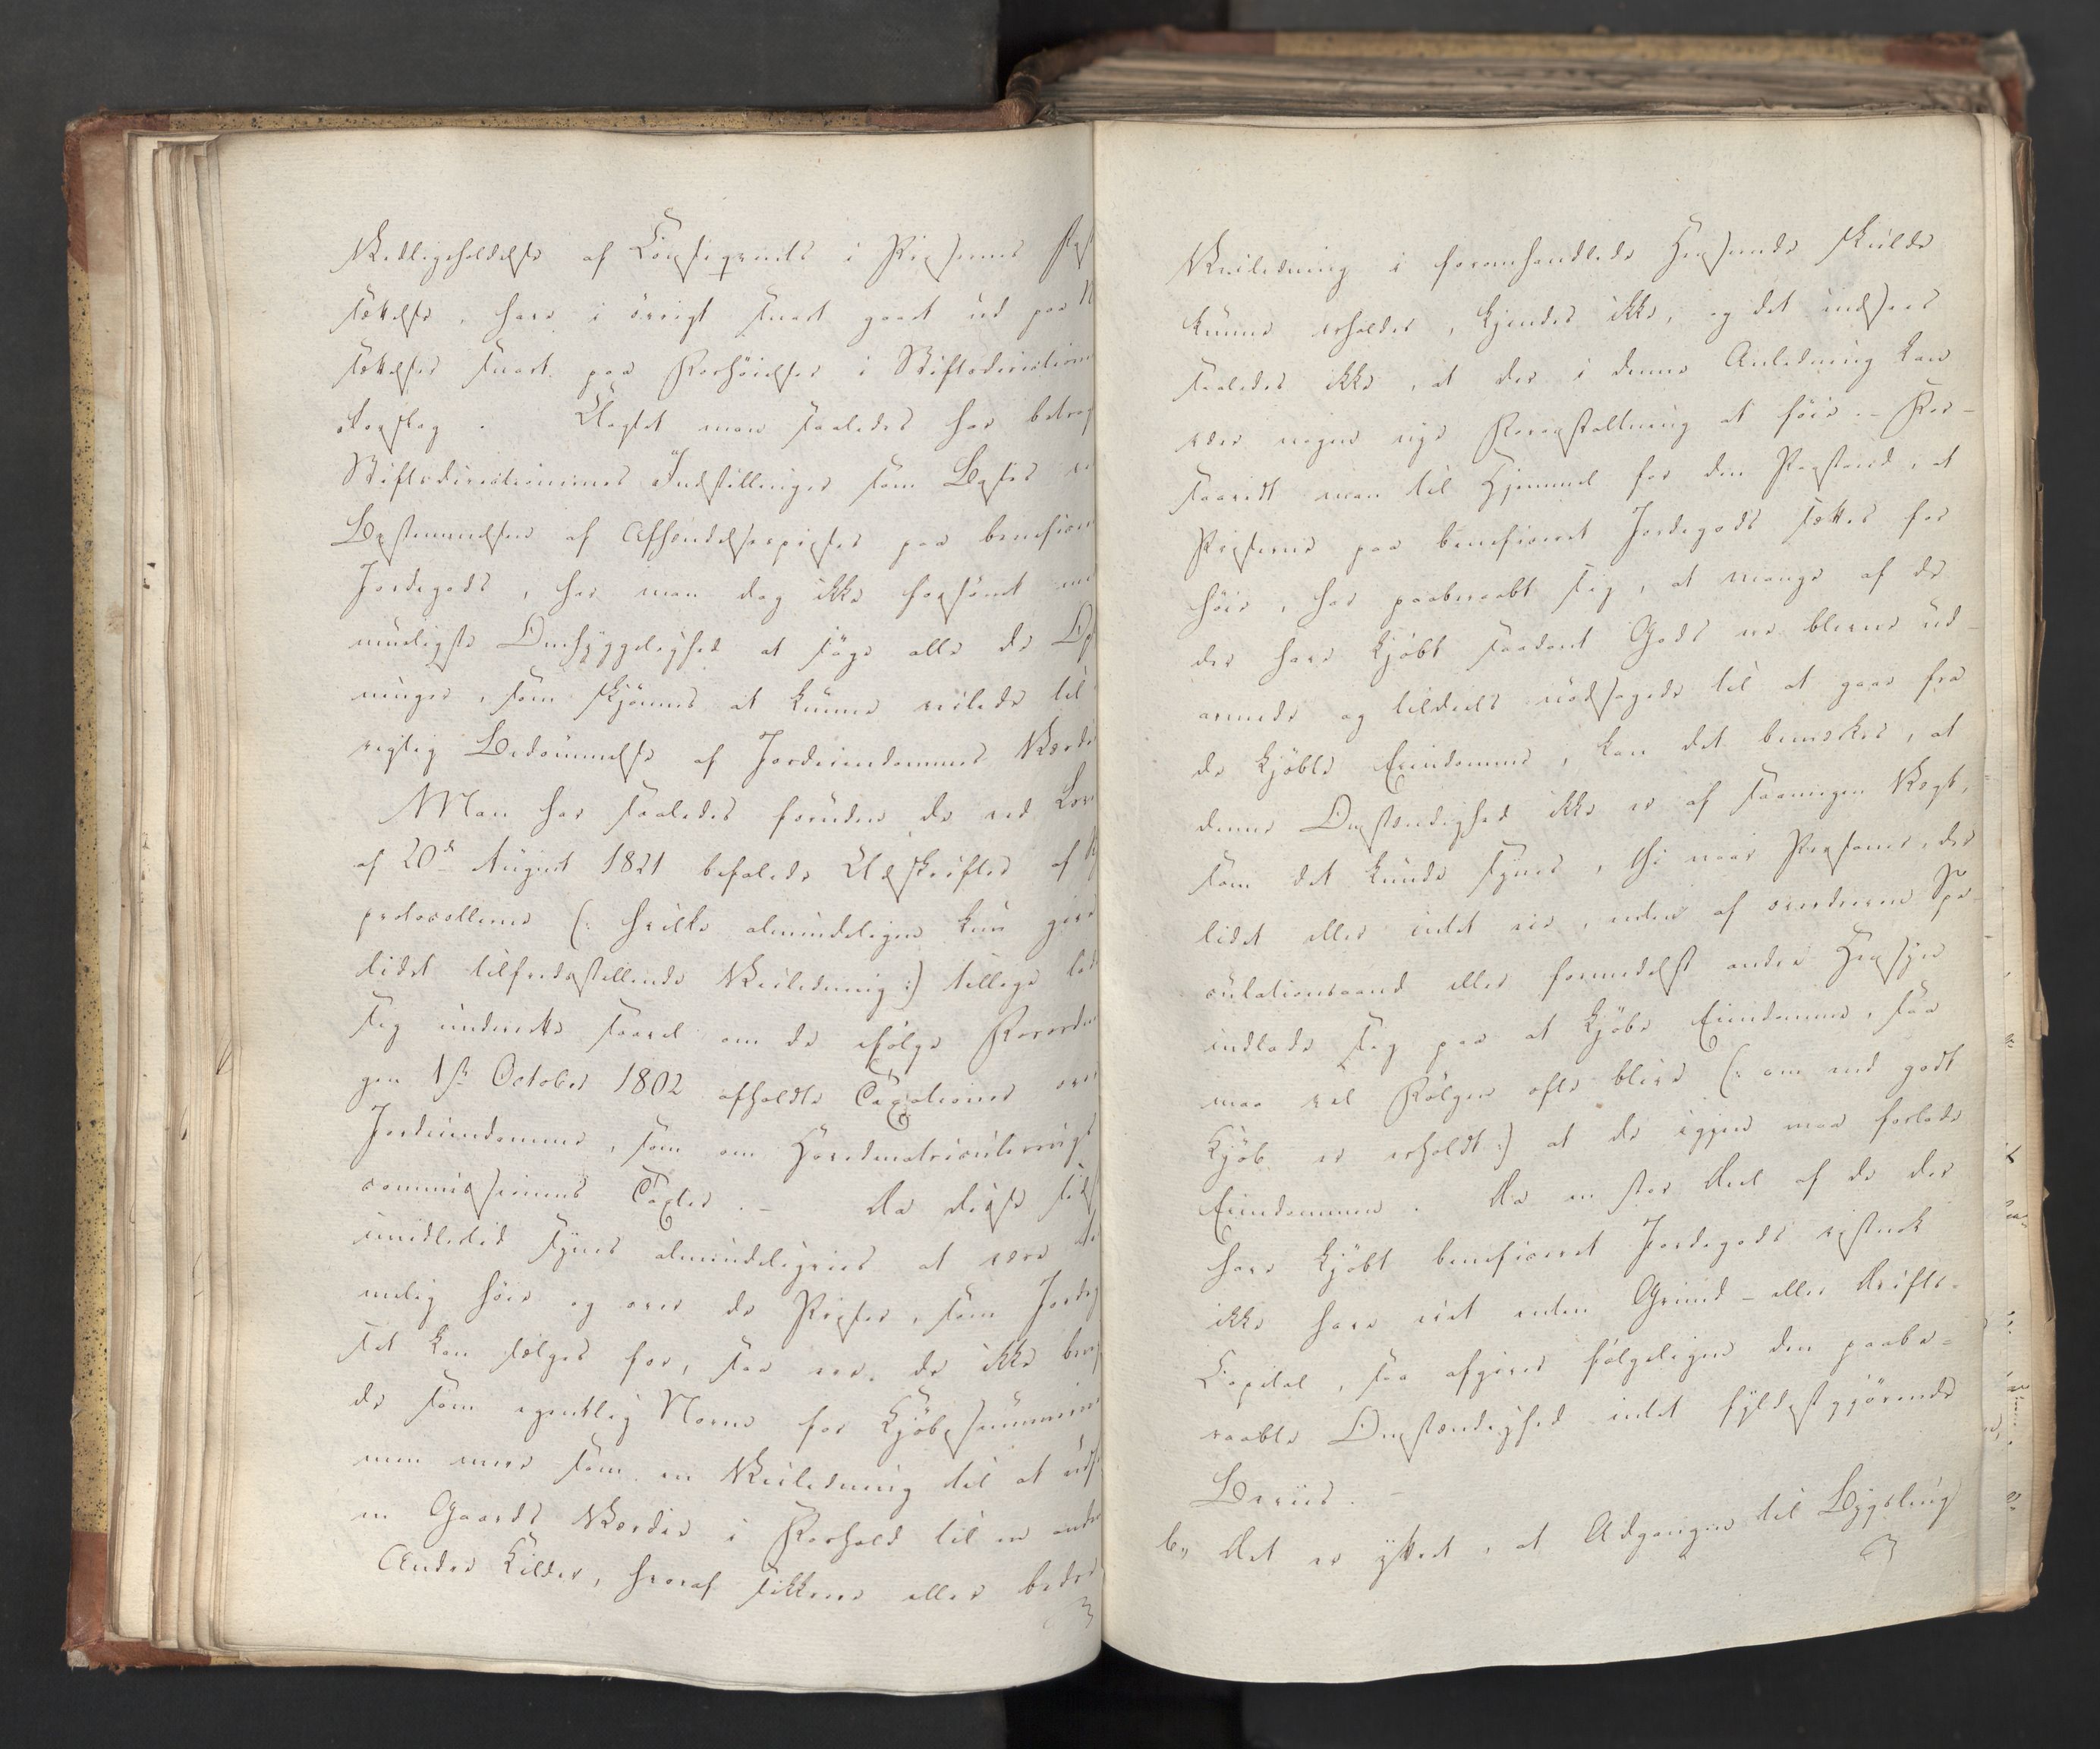 Vedligeholdelse af Consequents i Prisernes Fast
sættelse, have i övrigt snart gaaet ud paa N
sættelser snart paa Forhöielser i Stiftsdirection
Forslag. Uagtet man saaledes har betrag
Stiftsdirectionernes Indstillinger som Basis ve
Bestemmelsen af Afhændelsespriser paa beneficeret
Jordegods, har man dog ikke forsömt me
muligste Omhyggelighed at söge alle de Op
ninger, som skjönnes at kunne veilede til
rigtig Bedömmelse af Jordeiendommes Værdie
Man har saaledes foruden de ved Lov
af 20de August 1821 befalede Udskrifter af
protocollerne (: hvilke almindeligen kun give
lidet tilfredsstillende Veiledning :) tillige lad
sig underrette saavel om de ifölge Forordnin
gen 1ste October 1802 afholdte Taxationer over
Jordeiendomme, som om Hovedmatriculerings
commissionens Taxter. – Da disse sids
imidlertid synes almindeligviis at være te
melig höie og over de Priser, som Jordeg
set kan sælges for, saa ere de ikke brug
de som egentlig Norm for Kjöbesummerne
men mere som en Veiledning til at uds
en Gaards Værdie i Forhold til en anden
Andre Kilder, hvoraf sikkrere eller bedre
Veiledning i foromhandlede Henseende skulde
kunne erholdes, kjendes ikke, og det indsees
saaledes ikke, at der i denne Anledning kan
være nogen nye Foranstaltning at föie. – For-
saavidt man til Hjemmel for den Paastand, at
Priserne paa beneficeret Jordegods sættes for
höie, har paaberaabt sig, at mange af de
der have kjöbt saadant Gods ere blevne ud-
armede og tildeels nödsagede til at gaae fra
de kjöbte Eiendomme, kan det bemærkes, at
denne Omstændighed ikke er af saamegen Vægt,
som det kunde synes, thi naar Personer, der
lidet eller intet eie, enten af overdreven Spe-
culationsaand eller formedelst andre Hensyn
indlade sig paa at kjöbe Eiendomme, saa
maa vel Fölgen ofte blive (: om end godt
Kjöb er erholdt :) at de igjen maa forlade
Eiendommen. Da en stor Deel af de der
have kjöbt beneficeret Jordegods vistnok
ikke have eiet enten Grund- eller Drifts-
Capital, saa afgiver fölgeligen den paabe-
raabte Omstændighed intet fyldestgjörende
Beviis. –
b,, Det er yttret, at Adgangen til Bygsling